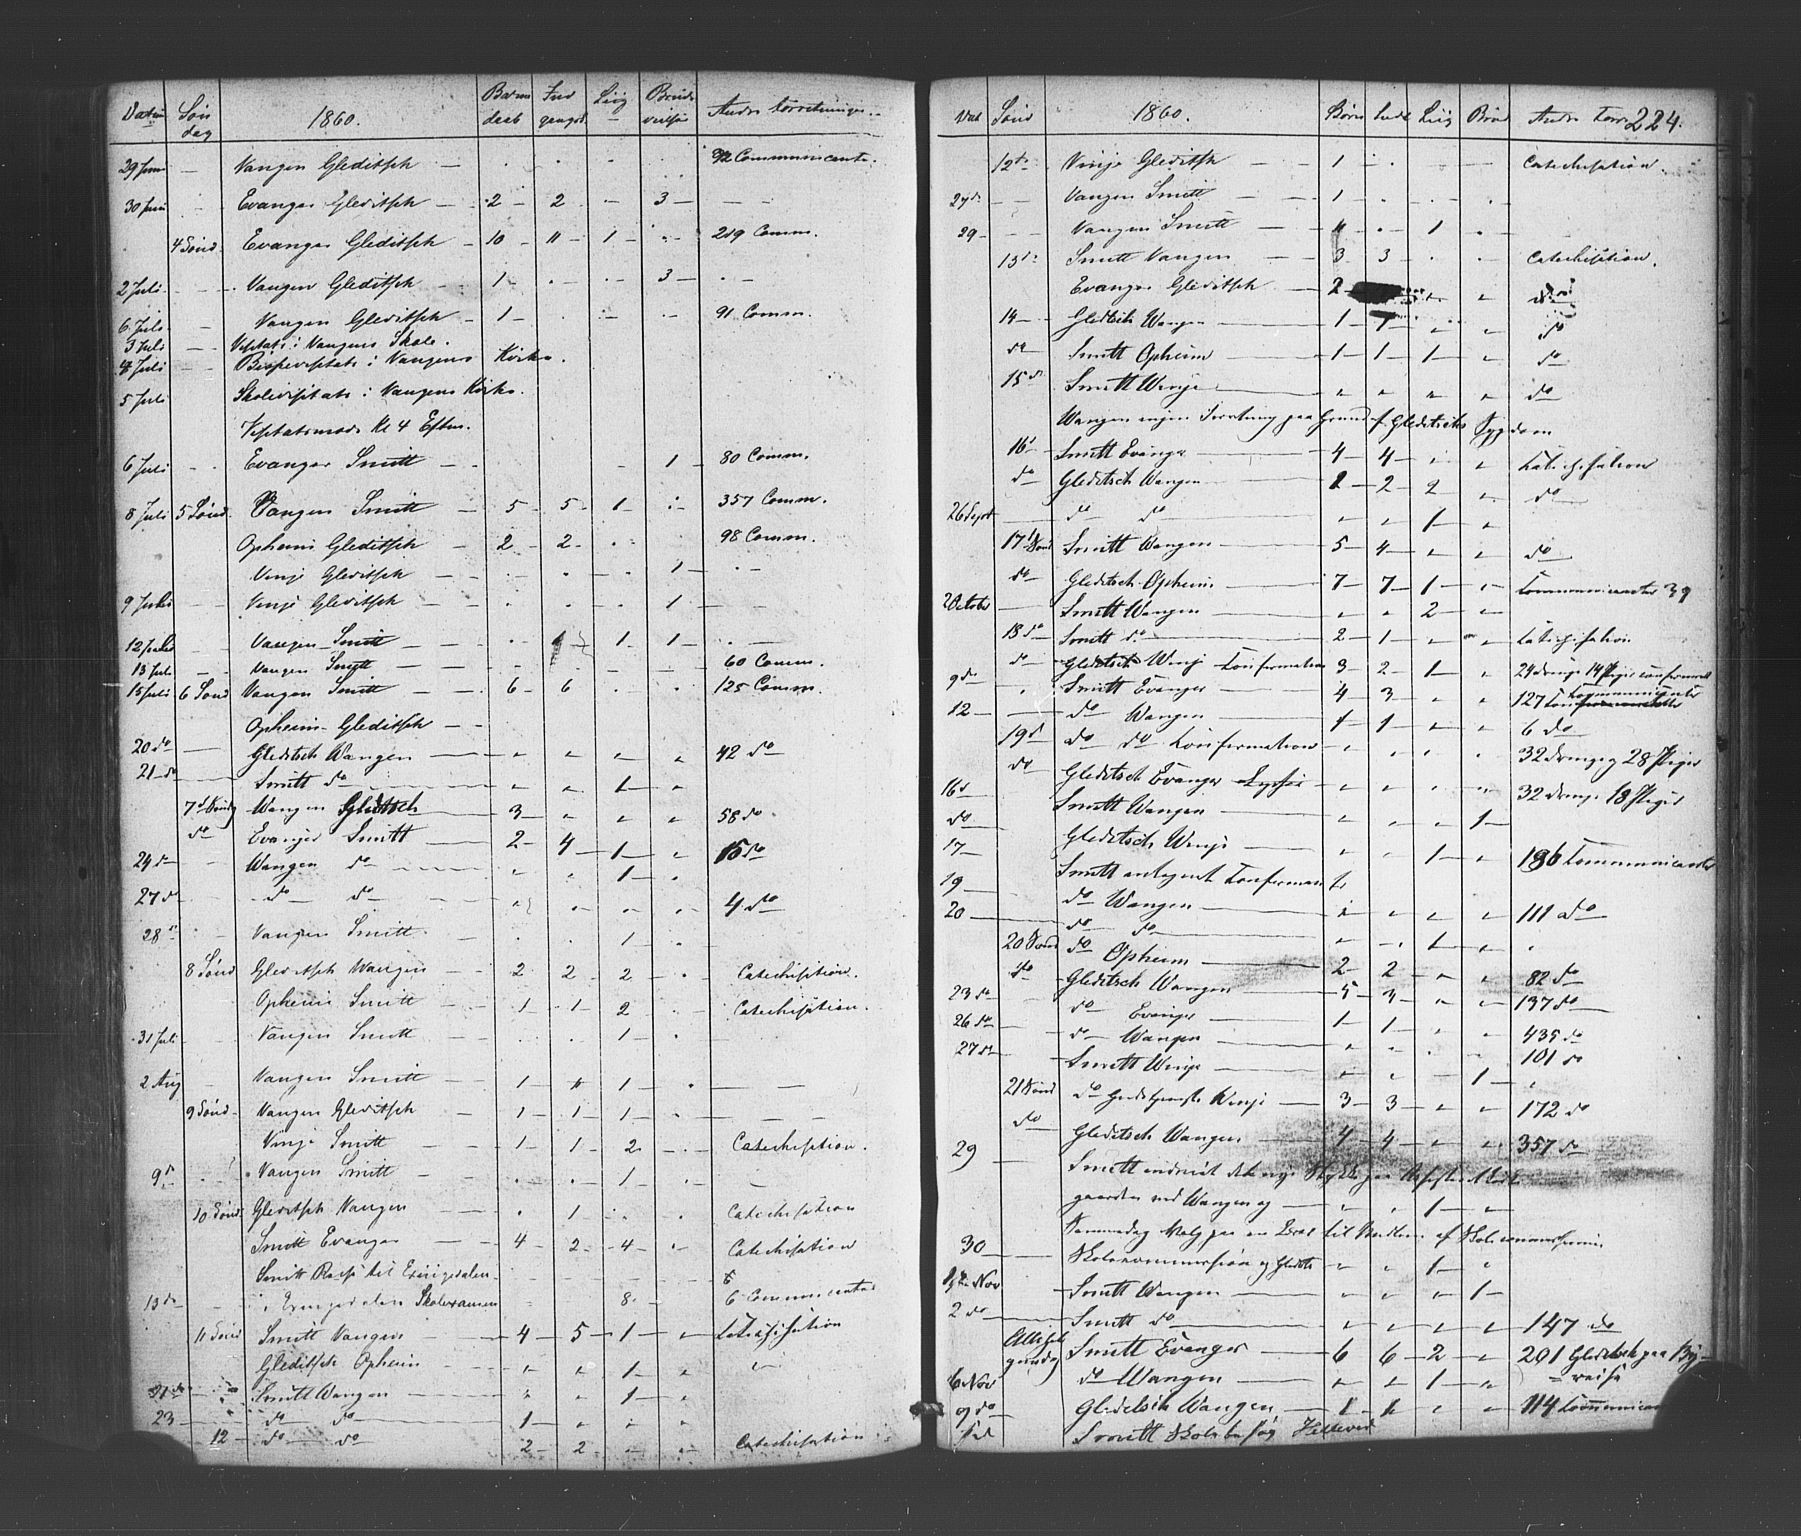 Datum Søn dag 1860. Barne daab Ind gangsk Liig Brude vielse Andre Forretninger
29 Juni — Vangen Gleditsch — 92 Communicanter.
30 Juni Evanger Gleditsch — 2 — 2 — 3 —
4 Sønd Evanger Gleditsch — 10 — 11 — 1 — 219 Comm.
2 Juli — Vangen Gleditsch — 1 — 3 —
6 Juli — Vangen Gleditsch — 1 — 91 Comm.
3 Juli — Visitats i Vangens Skole.
4 Juli — Bispevisitats i Vangens Kirke.
5 Juli Skolevisitats i Vangens Kirke.
Kl 4 Efterm.
6 Juli Evanger Smitt — 1 — 80 Comm.
8 Juli 5 Sønd. Vangen Smitt — 5 — 5 — 1 — 357 Comm.
Opheim Gleditsch — 2 — 2 — 98 Comm.
Vinje Gleditsch — 1 —
9 Juli Vinje Gleditsch — 1 —
12 Juli Vangen Smitt — 1 — 1 —
13 Juli Vangen Smitt — 60 Comm.
15 Juli 6 Sønd Vangen Smitt — 6 — 6 — 125 Comm.
Opheim Gleditsch —
20 do — Gleditsch Wangen — 42 do
21 do — Smitt do — 1 —
7d Søndg Wangen Gleditsch 3 — 58 do
do Evanger Smitt — 2 — 4 — 1 — 15 do
24 do — Wangen do — 1 —
27 do do do 4 do
28 — Vangen Smitt 1 —
8 Sønd Gleditsch Wangen — 2 — 2 — 2 — Catechisation.
Opheim Smitt — 1 — 1 — 2 Catechisation.
31 Juli Vangen Smitt 1 —
2 Aug Vangen Smitt — 1 — 1 —
9 Sønd Vangen Gleditsch — 1 — 1 — 1 —
Vinje Smitt — 1 — 1 — 2 Catechisation.
9 Vangen Smitt — 1 —
10 Sønd. Gleditsch Vangen 1 — Catechisation
Smitt Evanger — 4 — 2 — 4 — Catechisation
Smitt Reise til Exingedalen
13 do i Exingedalen Skolexamen 8 6 Communicanter
11 Sønd Smitt Vangen — 4 — 5 — 1 — Catechisation
Gleditsch Opheim 1 —
Smitt Wangen — 1 —
23 — do do — 1 —
12 do do 2 — 2 — Catechisation
Dat Sønd 1860. Børn Indl Liig Brud Andre Forr 224.
12te Vinje Gleditsch 1 — Catechisation.
27 do Vangen Smitt — 1 —
29 — Vangen Smitt — 1
13 d Smitt Vangen — 3 3 Catechisation.
Evanger Gleditsch — 2 do
14 — Gleditsch Wangen — 1 — 1 — do
do Smitt Opheim — 1 — 1 — 1 — do
15 d Smitt Winje — do
Wangen ingen Forretning paa Grund af Gleditschs Sygdom
16 Smitt Evanger 4 — 4 — Katechisation
do Gleditsch Wangen — 2 — 2 — do
26 Sept do do 1 —
17 Sønd Smitt Wangen — 5 — 4 — do
do Gleditsch Opheim — 7 — 7 — 1 — Kommunicanter 39
2 October — Smitt Wangen — 2 —
18 do Smitt do — 2 — 1 — Katechisation
do Gleditsch Winje Konfirmation 3 — 2 — 1 — 24 drenge 14 Piger confirmeret
9 do Smitt Evanger — 4 — 3 — 127 Kommunicanter
12 — do Wangen — 1 — 1 — 6 do
19 d do do Konfirmation 32 drenge 28 Piger
do Gleditsch Evanger 32 drenge 18 Piger
16 d Smitt Wangen —
do 1 —
17 — Gleditsch Winje — 1 — 196 Kommunicanter
19 — Smitt antegnet Konfirmant
20 — do Wangen — 111 do
do do — 1 —
20 Sønd do Opheim — 2 — 2 — 82 do
do Gleditsch Wangen — 5 — 3 — 137 do
23 do do Evanger — 1 — 1 —
26 do do Wangen — 435 do
27 do Smitt Winje 1 — 101 do
21 Sønd do Gudstjeneste Winje — 3 — 3 — 172 do
do Gleditsch Wangen — 4 — 4 — 357 do
29 — Smitt indviet det nye Stykke paa
gaarden ved Wangen og — 1 —
Samme dag Valg paa en Læs til Medlem af Skolecommissionen
30 — Skolekommission og 1 —
1ste Nov Smitt Wangen — 1 —
2 do Smitt do — 147 do
Allehelgensdag Smitt Evanger — 6 — 6 — 2 — 201 Gleditsch paa By-
reise
6 Nov do Wangen — 1 —
9 do Gleditsch Wangen — 1 — 1 114 Kommunican
Smitt Skolebesøg Helleved